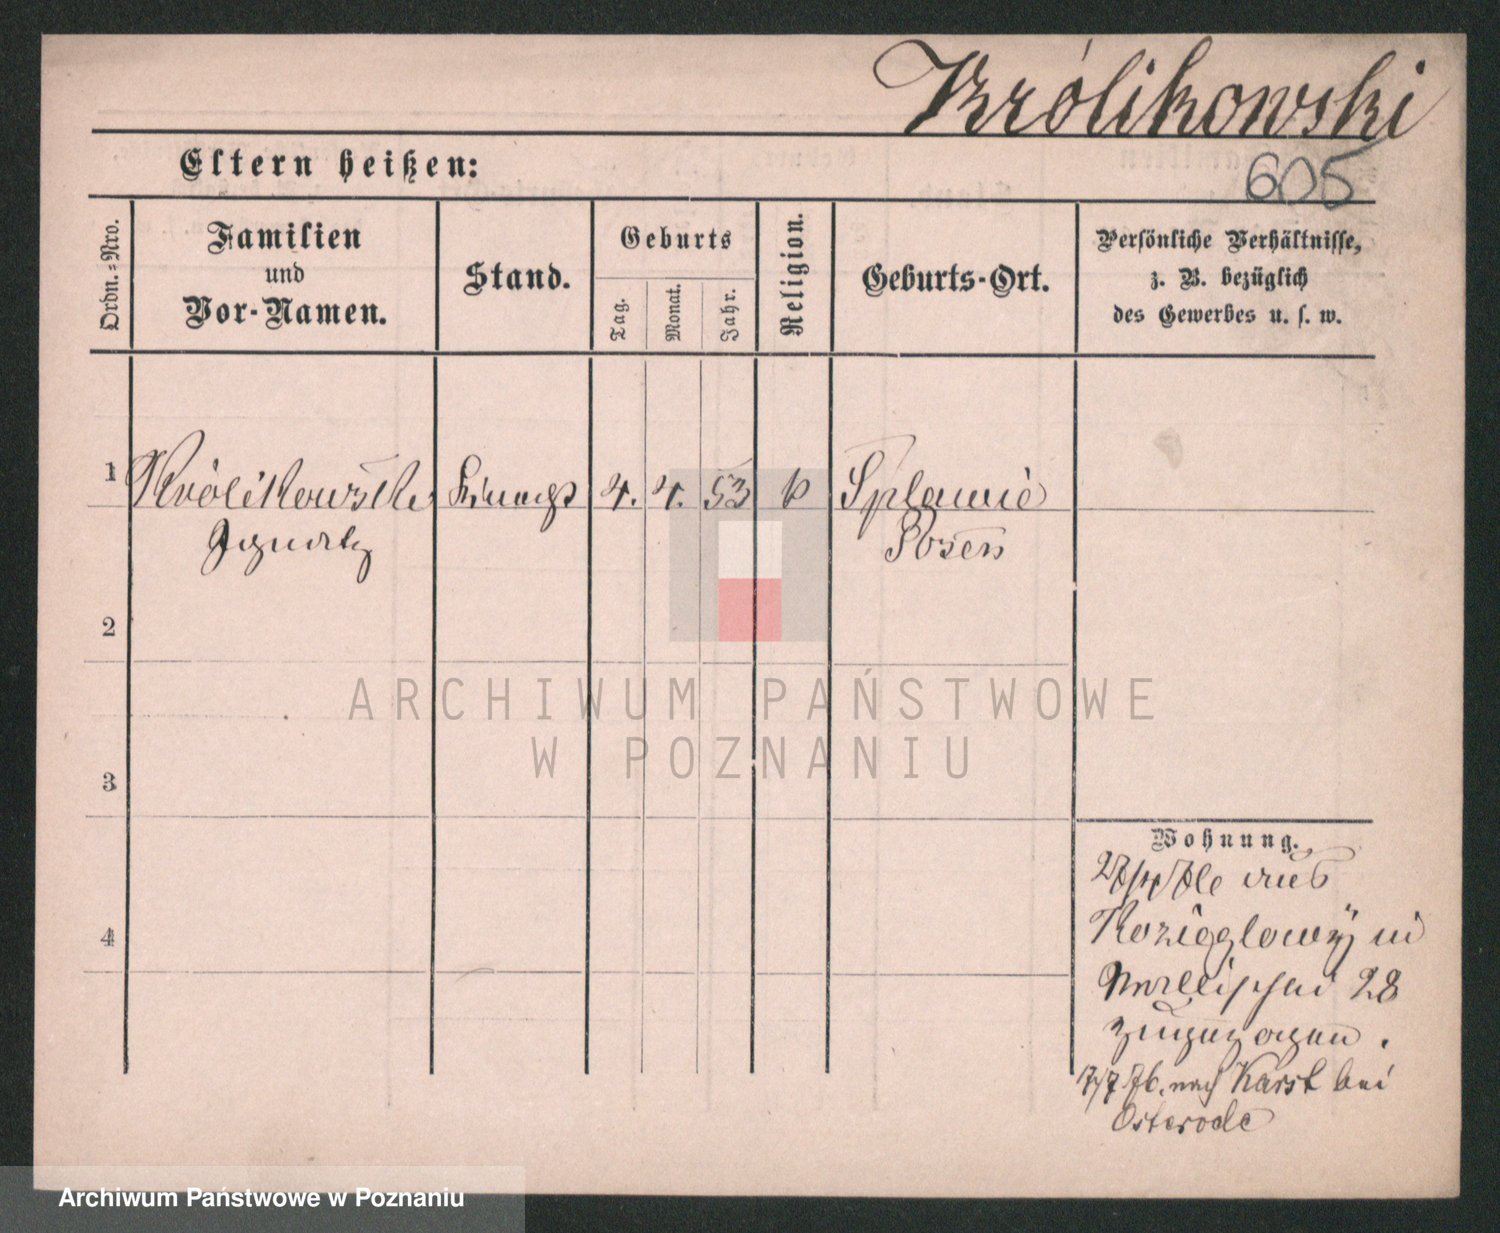 Królikowski
605
Eltern heißen:
Ordn.=Nro.
Familien
und
Vor-Namen.
Stand.
Geburts
Tag.
Monat.
Jahr.
Religion.
Geburts-Ort.
Persönliche Verhältnisse,
z. B. bezüglich
des Gewerbes u. s. w.
1
Królikowski
Ignatz
4.
4.
53
k
Splawie
Posen
2
3
4
ARCHIWUM PAŃSTWOWE
W POZNANIU
Wohnung.
aus
Kozieglowÿ in
Wallischei 28
zugezogen.
7/7 76. nach Karst bei
Osterode
Archiwum Państwowe w Poznaniu